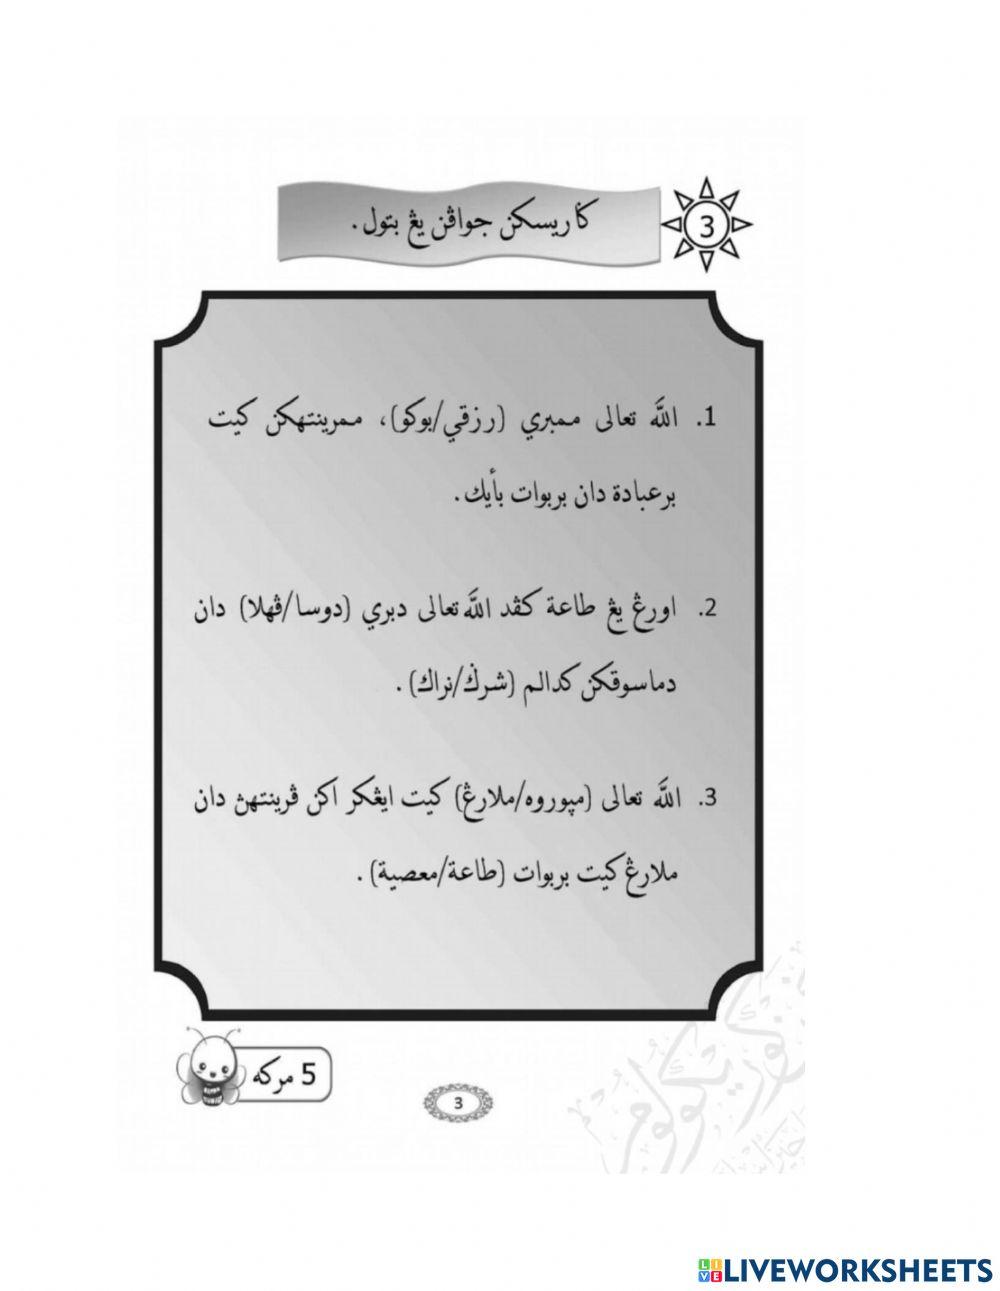 3 ݢاريسكن جواڤن يڠ بتول.
1. الله تعالى ممبري (رزقي/بوكو)، ممرينتهكن كيت
برعبادة دان بربوات بأيك.
2. اورڠ يڠ طاعة كڤد الله تعالى دبري (دوسا/ڤهلا) دان
دماسوقكن كدالم (شرڬ/نراك).
3. الله تعالى (مڽوروه/ملارڠ) كيت ايڠكر اكن ڤرينتهڽ دان
ملارڠ كيت بربوات (طاعة/معصية).
5 مركه
3
LIVEWORKSHEETS